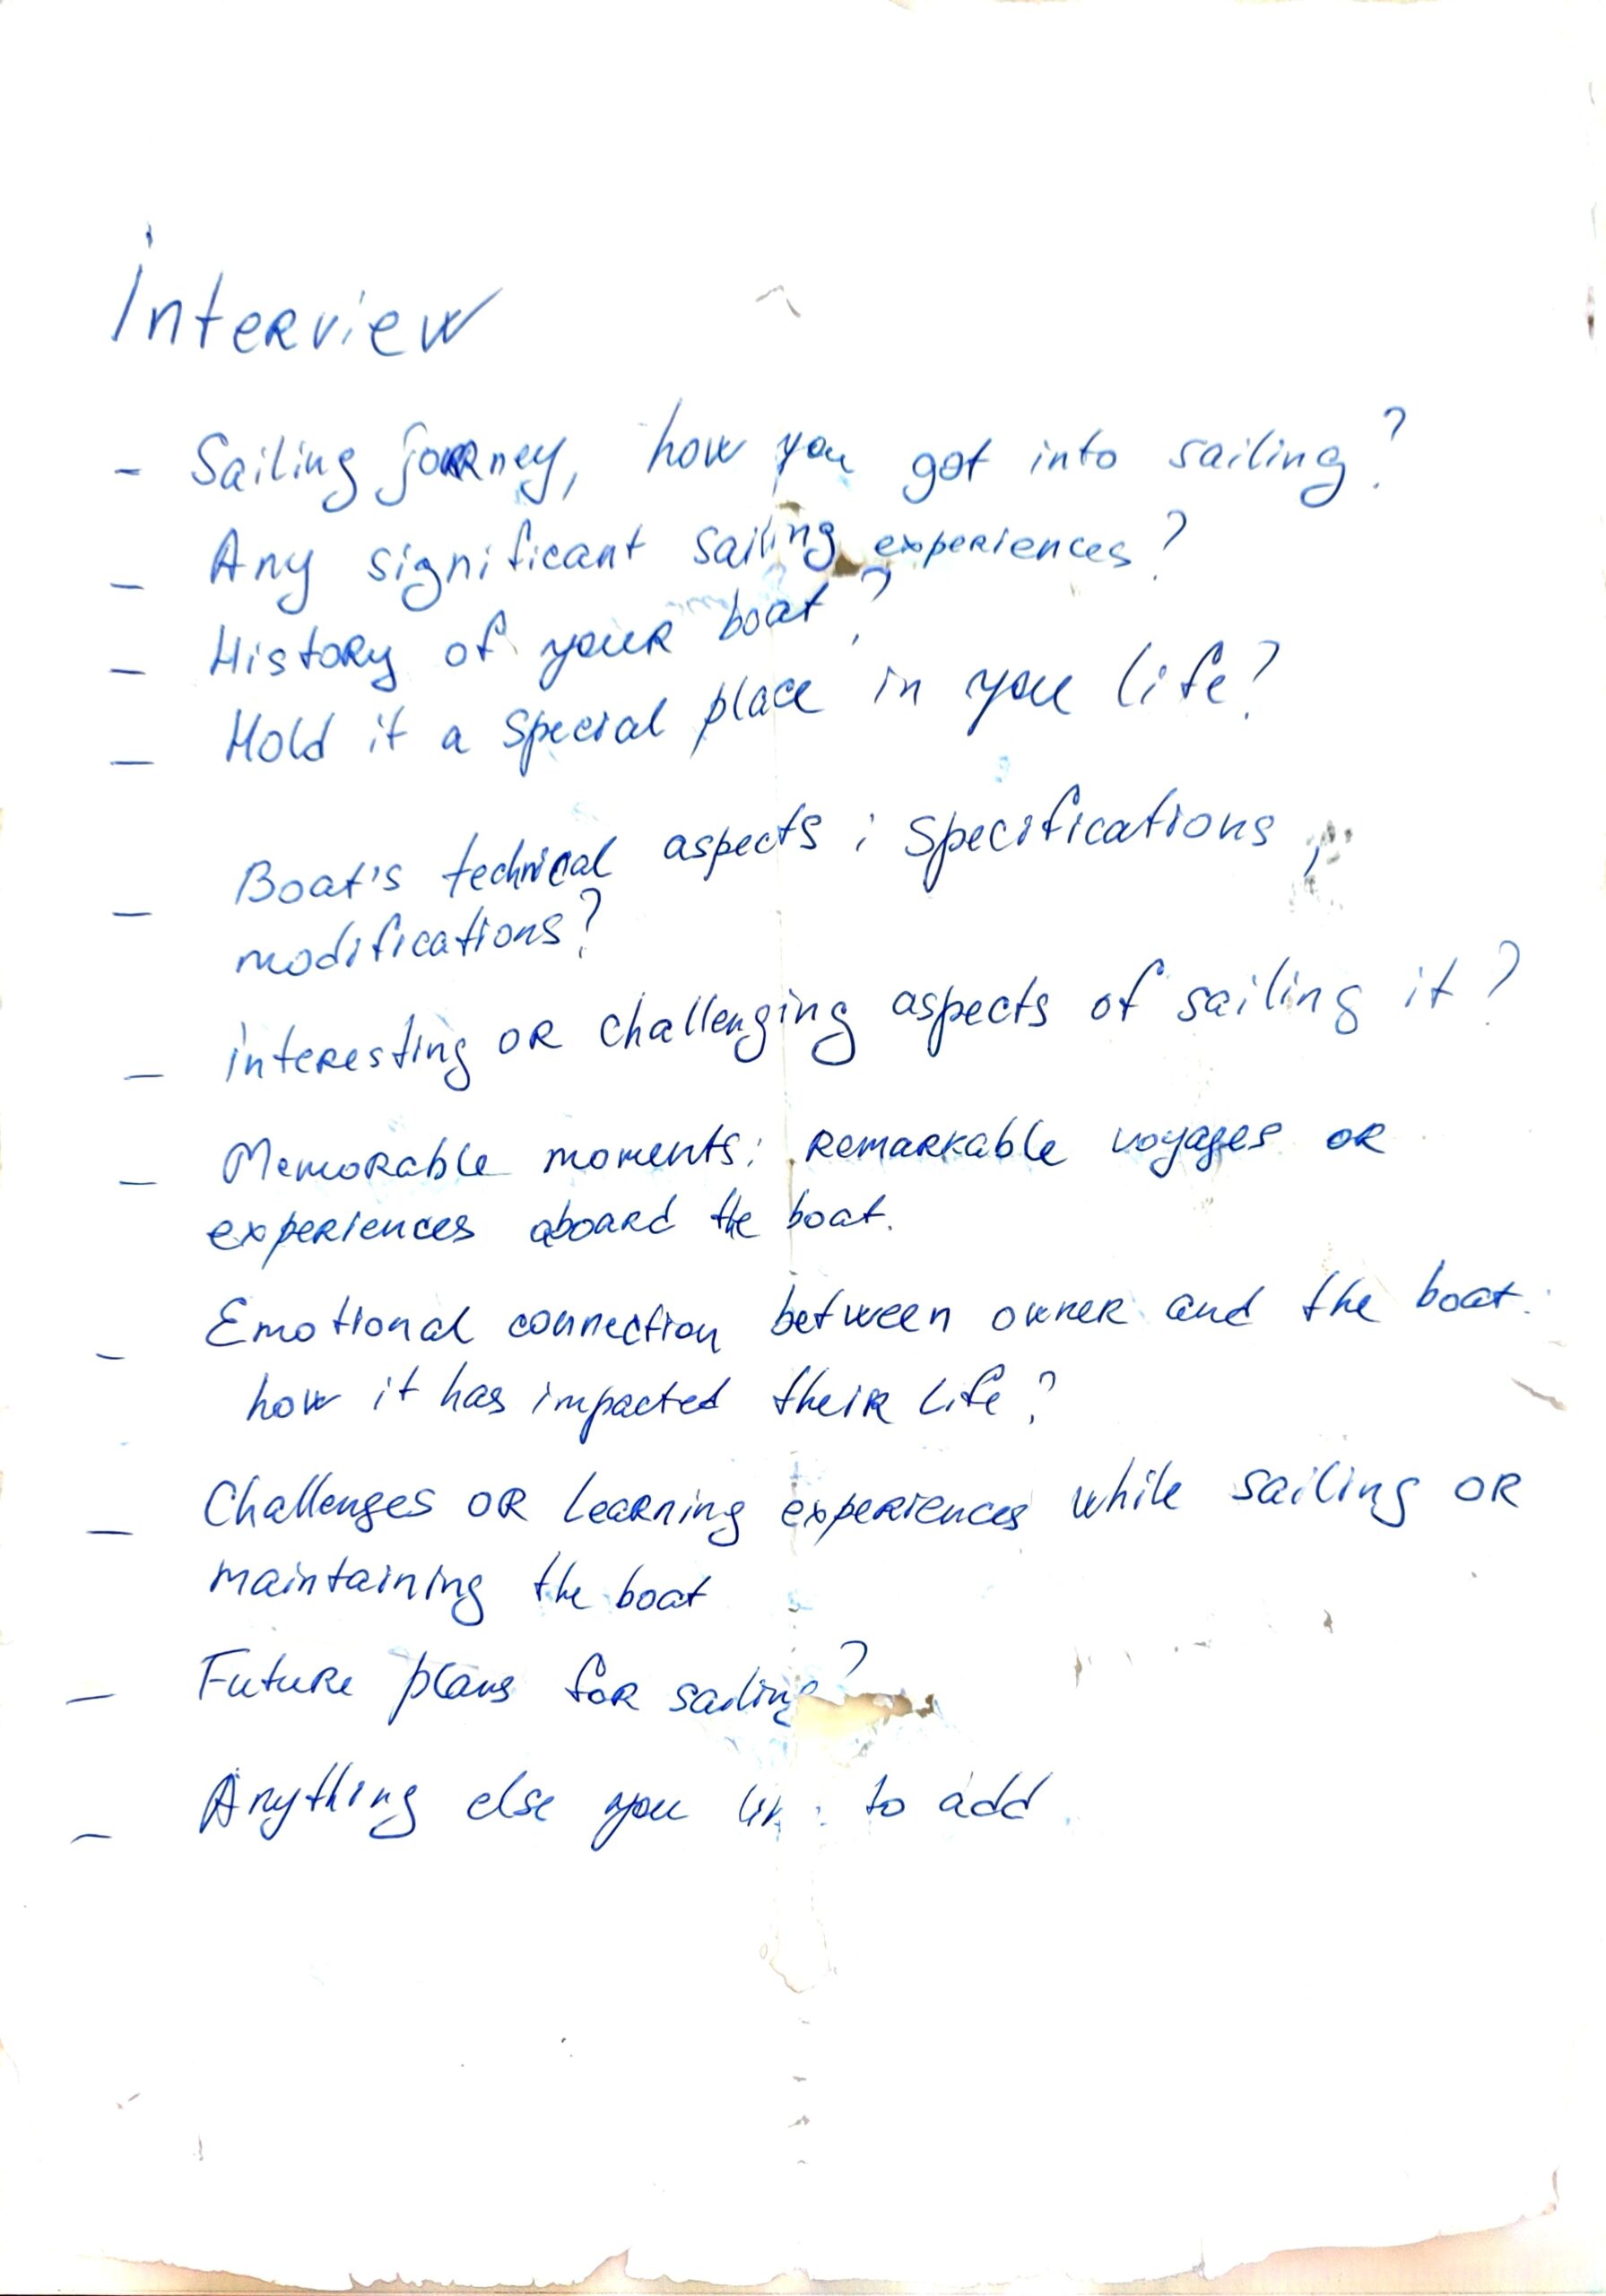 Interview
- Sailing journey, how you got into sailing?
- Any significant sailing experiences?
- History of your boat?
- Hold it a special place in you life?
- Boat's technical aspects: specifications,
modifications?
- interesting or challenging aspects of sailing it?
- Memorable moments: remarkable voyages or
experiences aboard the boat.
- Emotional connection between owner and the boat:
how it has impacted their life?
- Challenges or learning experiences while sailing or
maintaining the boat
- Future plans for sailing?
- Anything else you to add